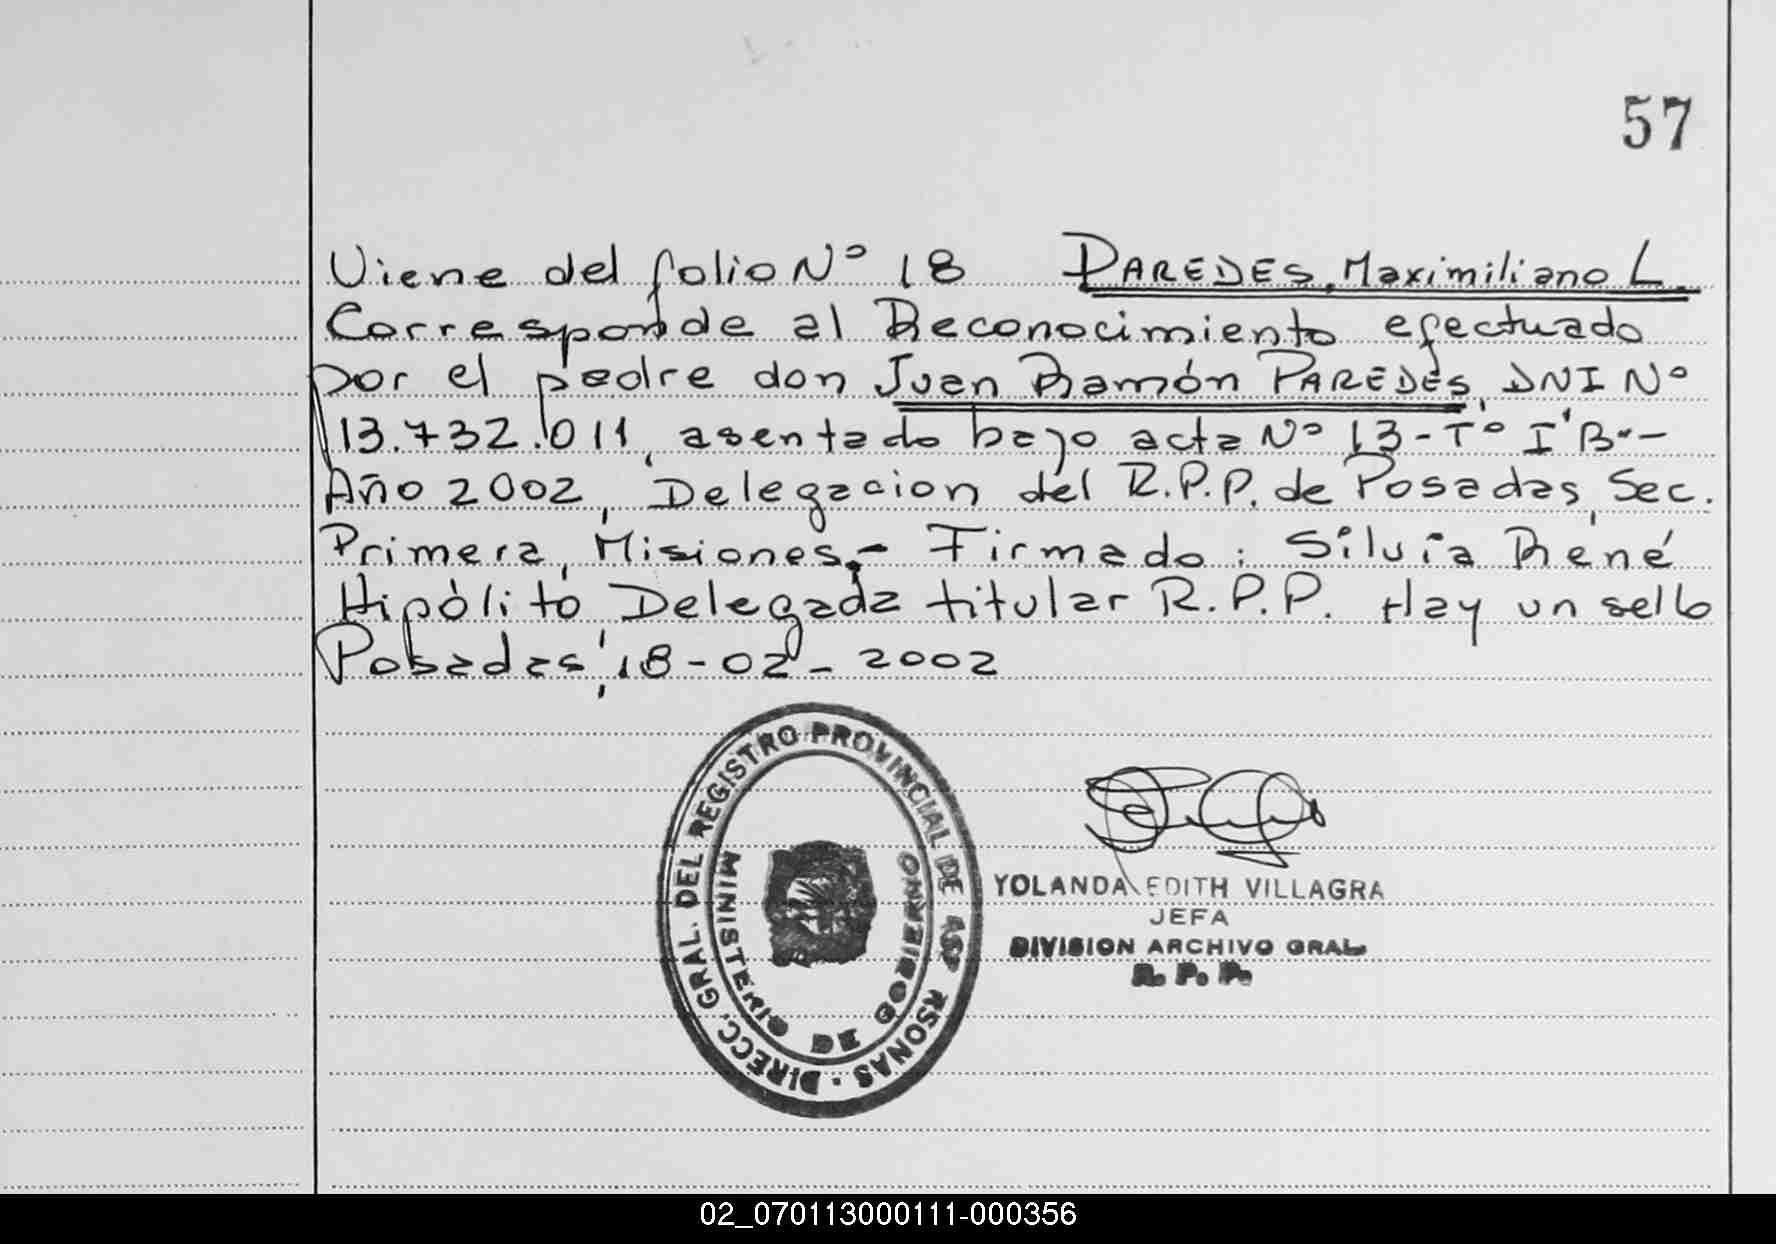 57
Viene del folio Nº 18 PAREDES, Maximiliano L.
Corresponde al Reconocimiento efectuado
por el padre don Juan Ramón PAREDES, DNI Nº
13.732.011, asentado bajo acta Nº 13-Tº I "B"-
Año 2002, Delegacion del R.P.P. de Posadas, Sec.
Primera, Misiones.- Firmado: Silvia René
Hipólito, Delegada titular R.P.P. Hay un sello
Posadas, 18-02-2002
DIRECC. GRAL. DEL REGISTRO PROVINCIAL DE
MINISTERIO DE GOBIERNO
YOLANDA EDITH VILLAGRA
JEFA
DIVISION ARCHIVO GRAL
R. P. P.
02_070113000111-000356